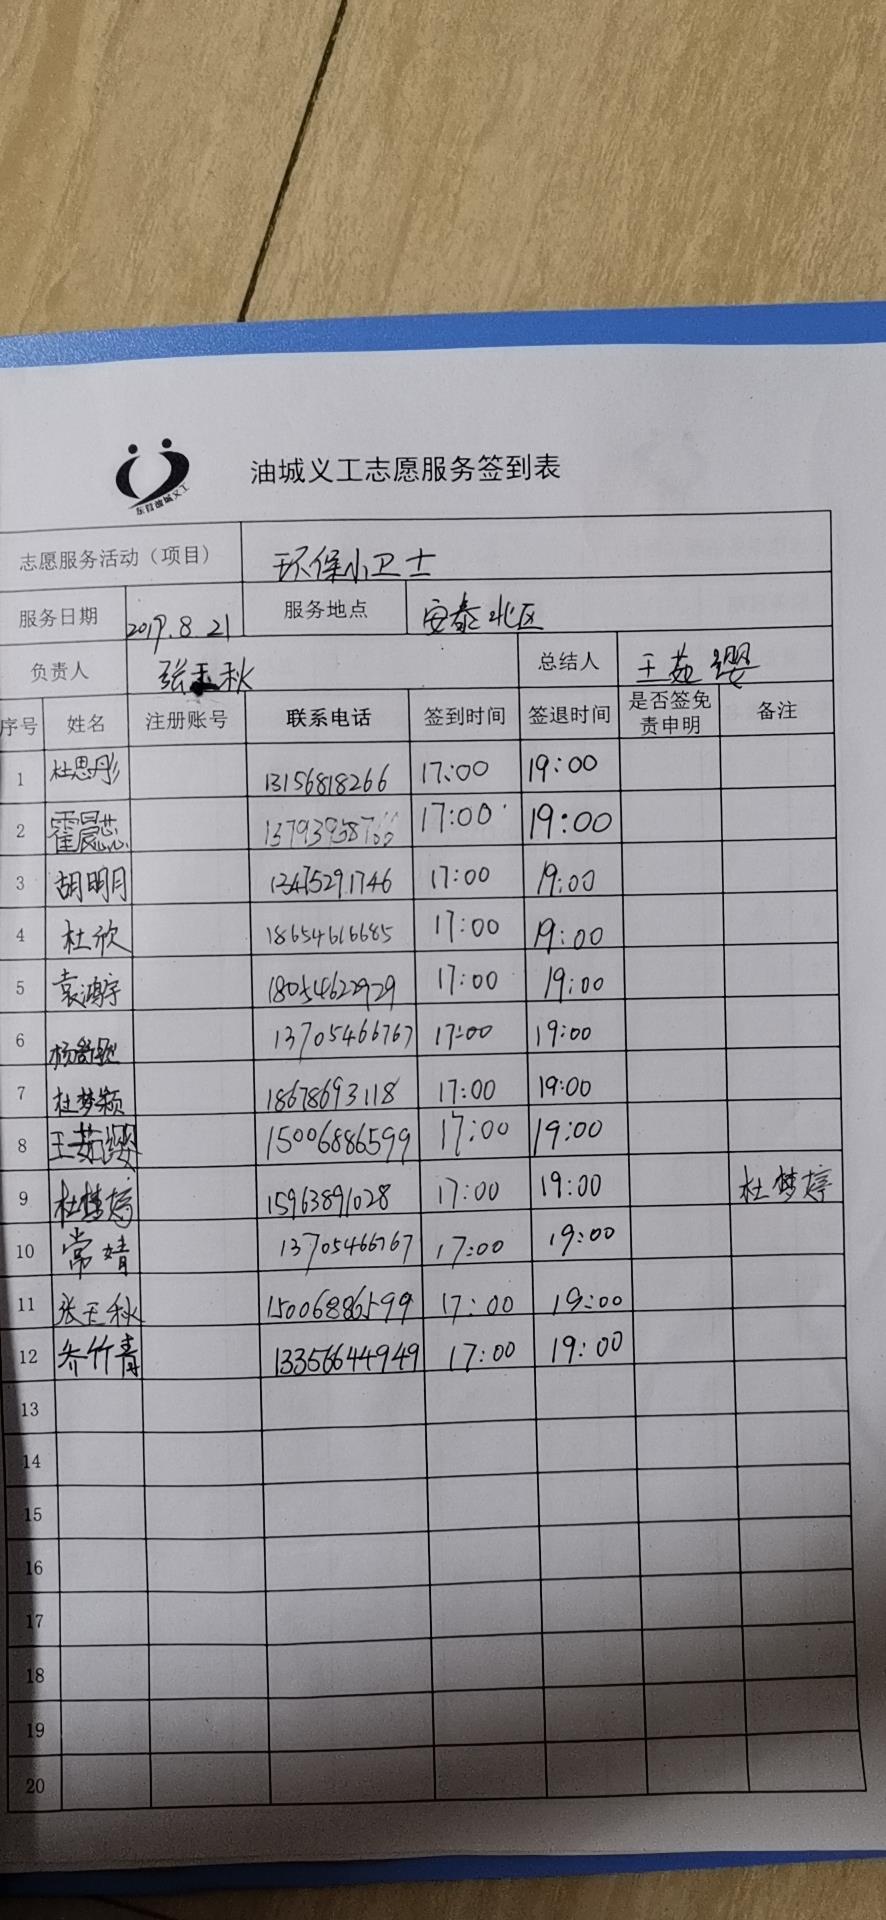 东营油城义工
油城义工志愿服务签到表
志愿服务活动（项目） 环保小卫士
服务日期 2019.8.21 服务地点 安泰北区
负责人 张玉秋 总结人 王茹璎
序号 姓名 注册账号 联系电话 签到时间 签退时间 是否签免责申明 备注
1 杜思彤 13156818266 17:00 19:00
2 霍晨蕊 17:00 19:00
3 胡明月 13475291746 17:00 19:00
4 杜欣 18654616685 17:00 19:00
5 袁鸿宇 18054622929 17:00 19:00
6 13705466767 17:00 19:00
7 杜梦颖 18678693118 17:00 19:00
8 王茹璎 15006886599 17:00 19:00
9 杜梦婷 15963891028 17:00 19:00 杜梦婷
10 常婧 13705466767 17:00 19:00
11 张玉秋 15006886599 17:00 19:00
12 乔竹青 13356644949 17:00 19:00
13
14
15
16
17
18
19
20